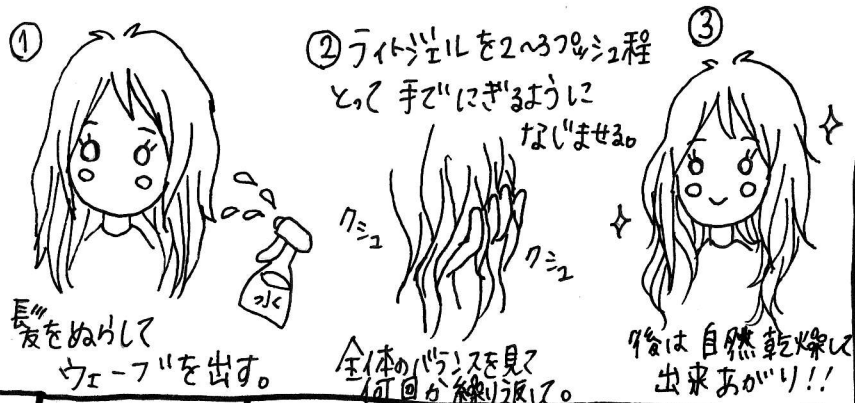 ①
髪をぬらして
ウェーブを出す。
水
② ライトジェルを2〜3プッシュ程
とって 手でにぎるように
なじませる。
クシュ
クシュ
全体のバランスを見て
何回か繰り返して。
③
後は自然乾燥して
出来あがり!!